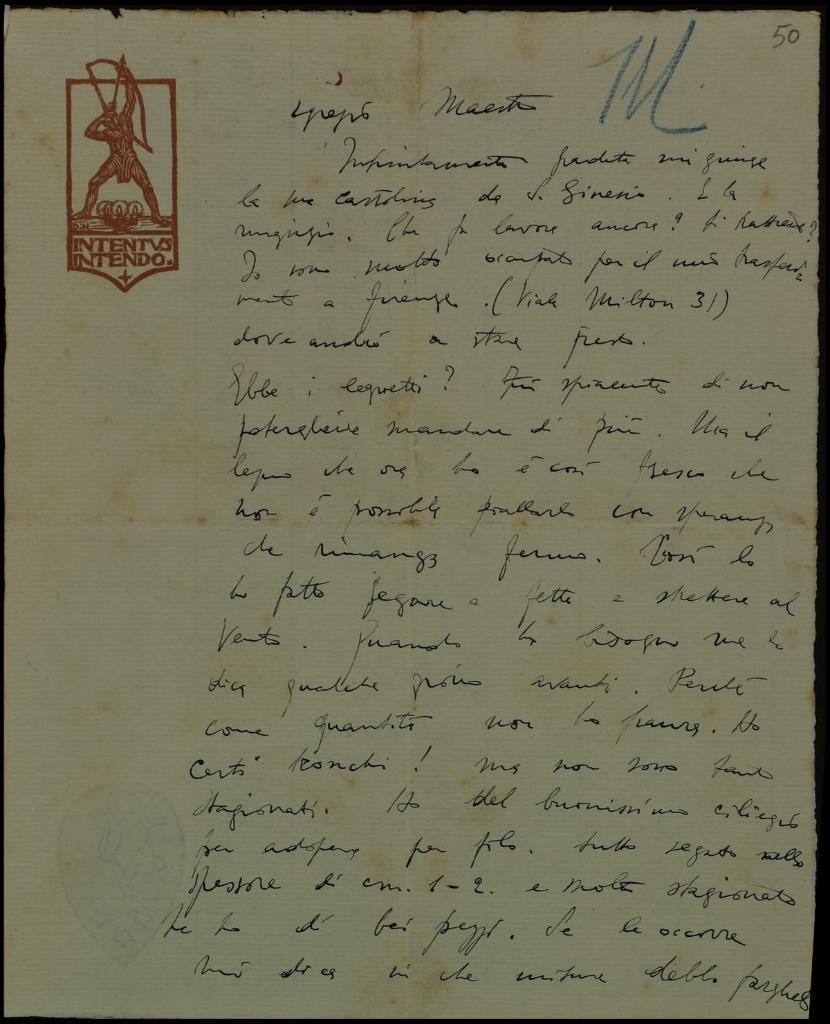 50
M
INTENTVS
INTENDO.
Egregio Maestro
Infinitamente gradita mi giunge
la sua cartolina da S. Ginesio. E la
ringrazio. Che fa lavora ancora? Si trattiene?
Io sono molto occupato per il mio trasferi
mento a Firenze. (Viale Milton 31)
dove andrò a stare presto.
Ebbe i legnetti? Fui spiacente di non
potergliene mandare di più. Ma il
legno che ora ho è così fresco che
non è possibile piallarlo con speranza
che rimanga fermo. Così lo
ho fatto segare a fette e mettere al
vento. Quando ha bisogno me lo
dica qualche giorno avanti. Perché
come quantità non ho paura. Ho
certi tronchi! ma non sono tanto
stagionati. Ho del buonissimo ciliegio
per adopera per filo. tutto segato nello
spessore di cm. 1-2. e molto stagionato
Ne ho di bei pezzi. Se le occorre
mi dica in che misure debbo